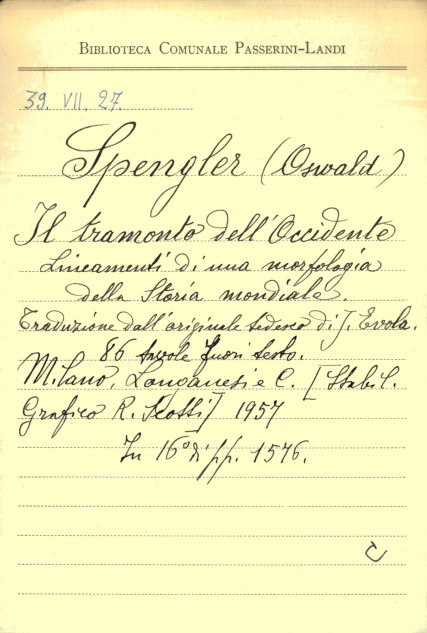 BIBLIOTECA COMUNALE PASSERINI-LANDI
39. VII. 27
Spengler (Oswald)
Il tramonto dell'Occidente
Lineamenti di una morfologia
della Storia mondiale.
Traduzione dall'originale tedesco di J. Evola.
86 tavole fuori testo.
Milano, Longanesi e C. [Stabil.
Grafico R. Scotti] 1957
In 16° di pp. 1576.
C